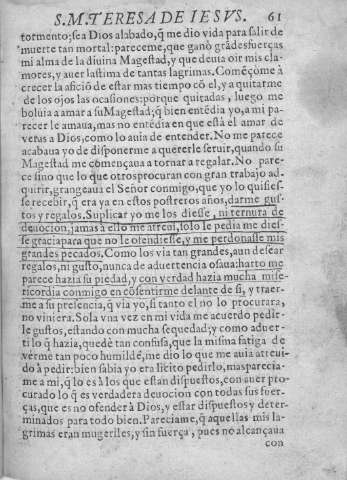 S. M. TERESA DE IESVS. 61
tormento; sea Dios alabado, q̃ me dio vida para salir de
muerte tan mortal: pareceme, que ganò grãdes fuerças
mi alma de la diuina Magestad, y que deuia oir mis cla-
mores, y auer lastima de tantas lagrimas. Comẽçòme à
crecer la aficiõ de estar mas tiempo cõ el, y a quitarme
de los ojos las ocasiones: porque quitadas, luego me
boluia a amar a su Magestad; q̃ bien entẽdia yo, a mi pa-
recer le amaua, mas no entẽdia en que està el amar de
veras a Dios, como lo auia de entender. No me parece
acabaua yo de disponerme a quererle seruir, quando su
Magestad me començaua a tornar a regalar. No pare-
ce sino que lo que otros procuran con gran trabajo ad-
quirir, grangeaua el Señor conmigo, que yo lo quisies-
se recebir, q̃ era ya en estos postreros años, darme gus-
tos y regalos. Suplicar yo me los diesse, ni ternura de
deuocion, jamas à ello me atreui, solo le pedia me dies-
se gracia para que no le ofendiesse, y me perdonasse mis
grandes pecados. Como los via tan grandes, aun desear
regalos, ni gusto, nunca de aduertencia osaua: harto me
parece hazia su piedad, y con verdad hazia mucha mise-
ricordia conmigo en cõsentirme delante de si, y traer-
me a su presencia, q̃ via yo, si tanto el no lo procurara,
no viniera. Sola vna vez en mi vida me acuerdo pedir-
le gustos, estando con mucha sequedad; y como aduer-
ti lo q̃ hazia, quedè tan confusa, que la misma fatiga de
verme tan poco humilde, me dio lo que me auia atreui-
do à pedir: bien sabia yo era licito pedirlo, mas parecia-
me a mi, q̃ lo es à los que estàn dispuestos, con auer pro-
curado lo q̃ es verdadera deuocion con todas sus fuer-
ças, que es no ofender à Dios, y estar dispuestos y deter-
minados para todo bien. Pareciame, q̃ aquellas mis la-
grimas eran mugeriles, y sin fuerça, pues no alcançaua
con